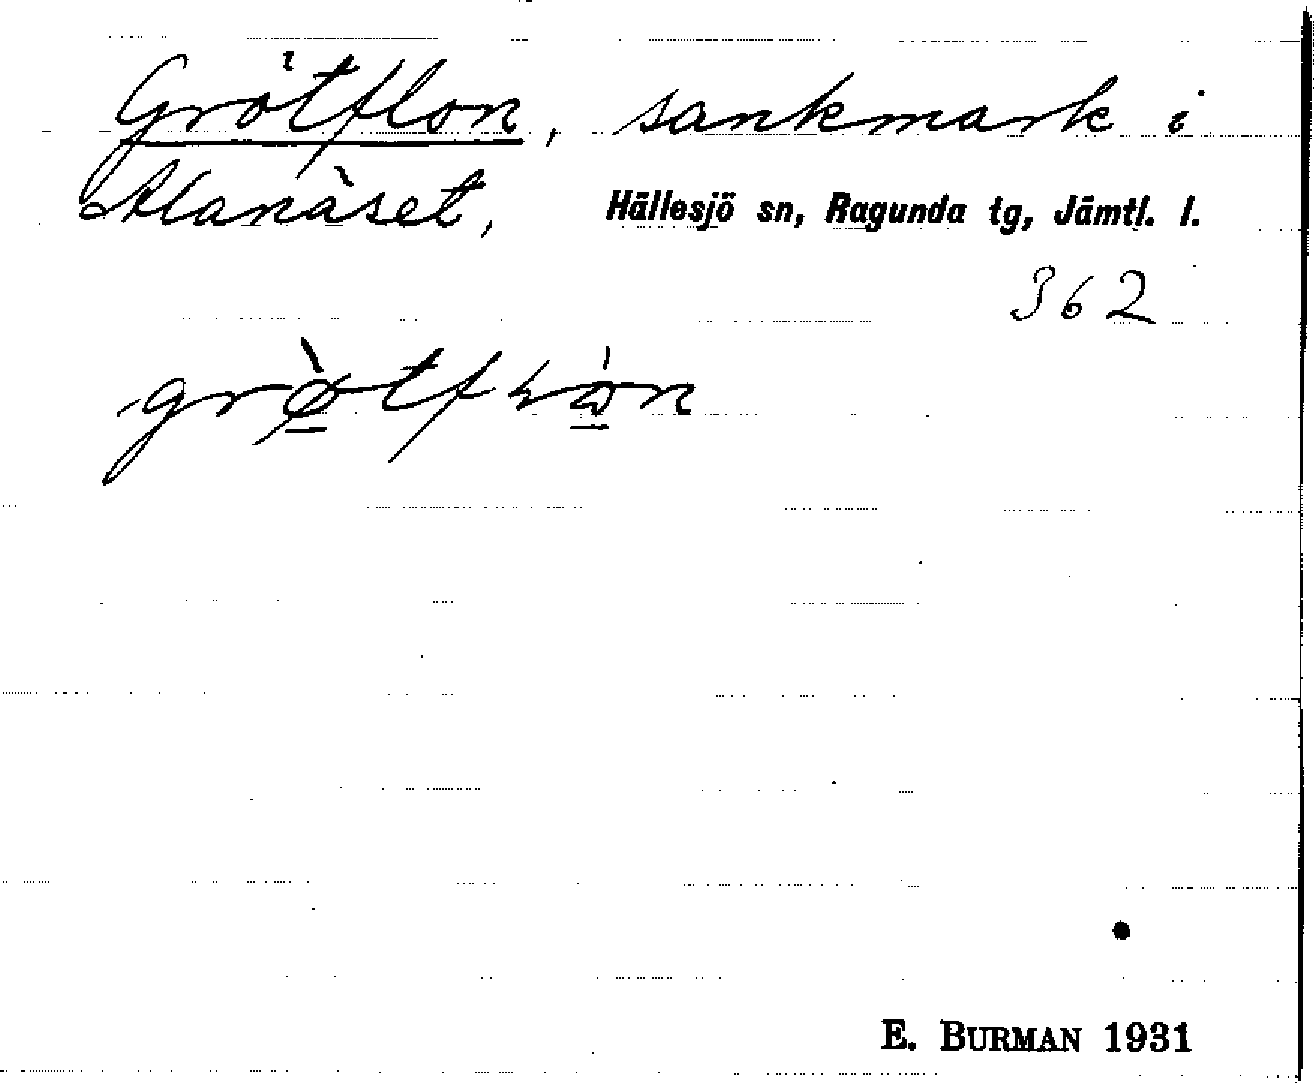 Grötflon, sankmark i
Alanäset, Hällesjö sn, Ragunda tg, Jämtl. l.
362
E. BURMAN 1931